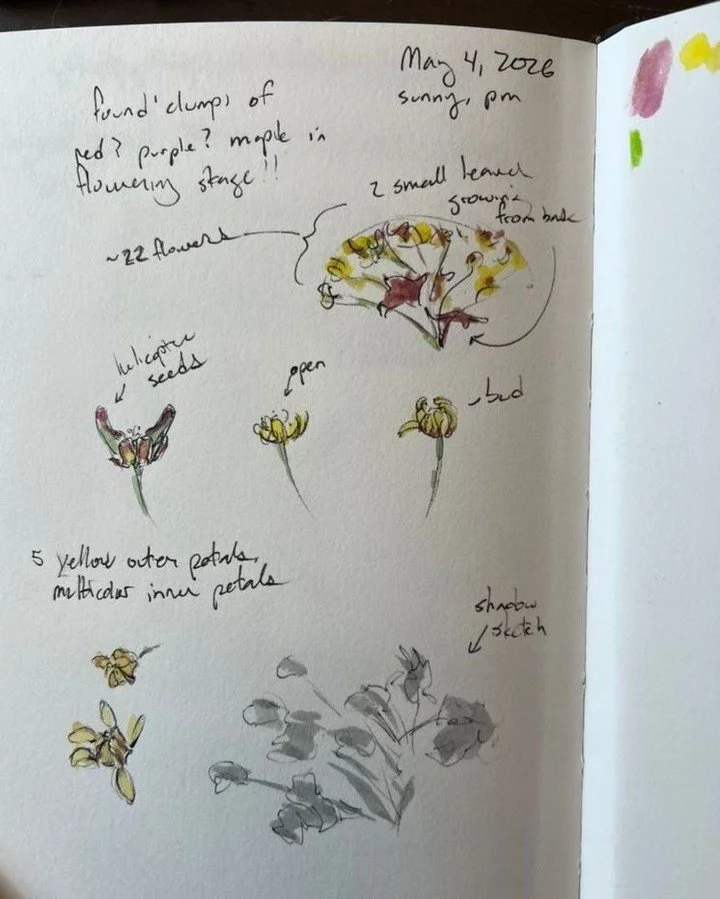 May 4, 2026
sunny, pm
found clumps of
red? purple? maple in
flowering stage!!
2 small leaves
growing
from base
~22 flowers
helicopter
seeds
open
bud
5 yellow outer petals,
multicolor inner petals
shadow
sketch